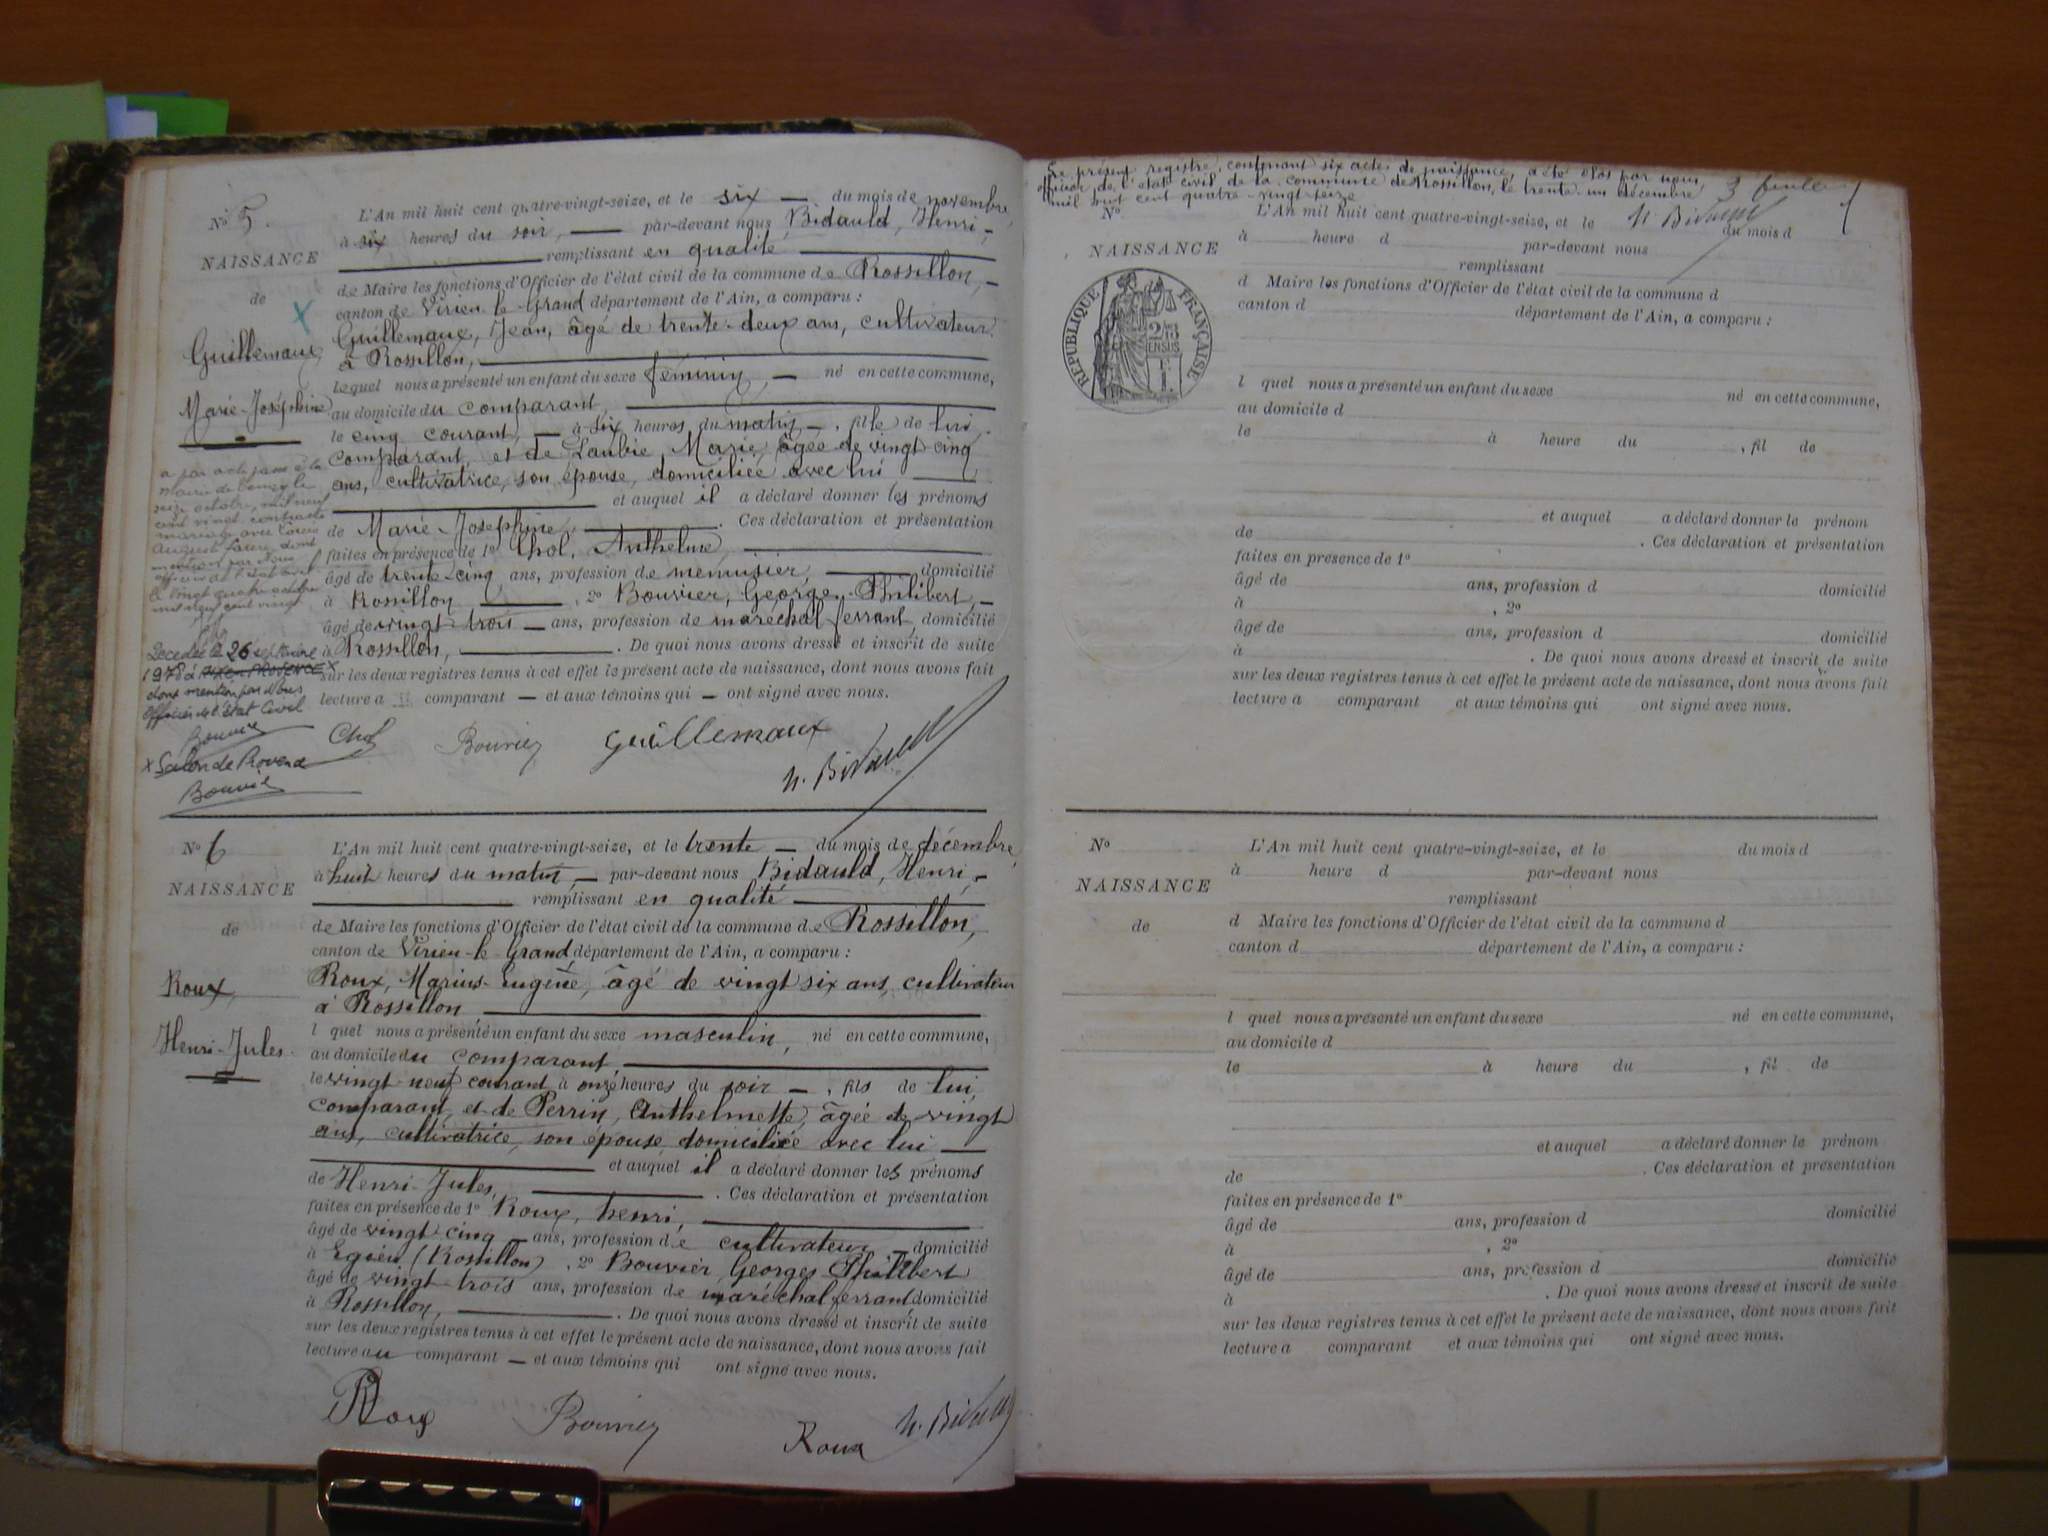 N° 5.
NAISSANCE
de
Guillemaux
Marie-Joséphine
L'An mil huit cent quatre-vingt-seize, et le six du mois de novembre,
à six heures du soir, par-devant nous Bidauld, Henri,
remplissant en qualité
de Maire les fonctions d'Officier de l'état civil de la commune de Rossillon,
canton de Virieu-le-Grand département de l'Ain, a comparu :
Guillemaux, Jean, âgé de trente-deux ans, cultivateur
à Rossillon,
lequel nous a présenté un enfant du sexe féminin, né en cette commune,
au domicile du comparant,
le cinq courant, à six heures du matin, fille de lui
comparant, et de Laubie, Marie, âgée de vingt cinq
ans, cultivatrice, son épouse, domiciliée avec lui
et auquel il a déclaré donner les prénoms
de Marie-Joséphine, . Ces déclaration et présentation
faites en présence de 1° Chol, Anthelme,
âgé de trente-cinq ans, profession de menuisier, domicilié
à Rossillon , 2° Bouvier, George-Philibert,
âgé de vingt trois ans, profession de maréchal ferrant, domicilié
à Rossillon, . De quoi nous avons dressé et inscrit de suite
sur les deux registres tenus à cet effet le présent acte de naissance, dont nous avons fait
lecture a comparant et aux témoins qui ont signé avec nous.
a par acte passé à la
mairie de le
seize octobre, mil neuf
cent vingt contracté
mariage avec Louis
August Faure, dont
mention par Nous
officier de l'état civil
le vingt quatre octobre
mil neuf cent vingt
Décédée le 26 septembre
1978 à AIX en PROVENCE X
dont mention par Nous
Officier de l'état Civil
Bouvier
x Salon de Provence
Bouvier
Chol Bouvier Guillemaux
h. Bidauld
N° 6
NAISSANCE
de
Roux,
Henri-Jules.
L'An mil huit cent quatre-vingt-seize, et le trente du mois de décembre,
à huit heures du matin, par-devant nous Bidauld, Henri,
remplissant en qualité
de Maire les fonctions d'Officier de l'état civil de la commune de Rossillon,
canton de Virieu-le-Grand, département de l'Ain, a comparu :
Roux, Marius-Eugène, âgé de vingt six ans, cultivateur
à Rossillon
l quel nous a présenté un enfant du sexe masculin, né en cette commune,
au domicile du comparant,
le vingt-neuf courant à onze heures du soir , fils de lui,
comparant, et de Perrin, Anthelmette, âgée de vingt
ans, cultivatrice, son épouse, domiciliée avec lui
et auquel il a déclaré donner les prénoms
de Henri-Jules, . Ces déclaration et présentation
faites en présence de 1° Roux, henri,
âgé de vingt cinq ans, profession de cultivateur domicilié
à Egieu (Rossillon) , 2° Bouvier Georges Philibert
âgé de vingt-trois ans, profession de maréchal ferrant domicilié
à Rossillon, . De quoi nous avons dressé et inscrit de suite
sur les deux registres tenus à cet effet le présent acte de naissance, dont nous avons fait
lecture au comparant et aux témoins qui ont signé avec nous.
Roux Bouvier Roux h. Bidauld
Le présent registre, contenant six actes de naissance, a été clos par nous,
officier de l'état civil de la commune de Rossillon, le trente-un décembre
mil huit cent quatre-vingt-seize
3
h. Bidauld
N°
NAISSANCE
REPUBLIQUE FRANÇAISE
L'An mil huit cent quatre-vingt-seize, et le du mois d
à heure d par-devant nous
remplissant
d Maire les fonctions d'Officier de l'état civil de la commune d
canton d département de l'Ain, a comparu :
l quel nous a présenté un enfant du sexe né en cette commune,
au domicile d
le à heure du , fil de
et auquel a déclaré donner le prénom
de . Ces déclaration et présentation
faites en présence de 1°
âgé de ans, profession d domicilié
à , 2°
âgé de ans, profession d domicilié
à . De quoi nous avons dressé et inscrit de suite
sur les deux registres tenus à cet effet le présent acte de naissance, dont nous avons fait
lecture a comparant et aux témoins qui ont signé avec nous.
N°
NAISSANCE
de
L'An mil huit cent quatre-vingt-seize, et le du mois d
à heure d par-devant nous
remplissant
d Maire les fonctions d'Officier de l'état civil de la commune d
canton d département de l'Ain, a comparu :
l quel nous a présenté un enfant du sexe né en cette commune,
au domicile d
le à heure du , fil de
et auquel a déclaré donner le prénom
de . Ces déclaration et présentation
faites en présence de 1°
âgé de ans, profession d domicilié
à , 2°
âgé de ans, profession d domicilié
à . De quoi nous avons dressé et inscrit de suite
sur les deux registres tenus à cet effet le présent acte de naissance, dont nous avons fait
lecture a comparant et aux témoins qui ont signé avec nous.